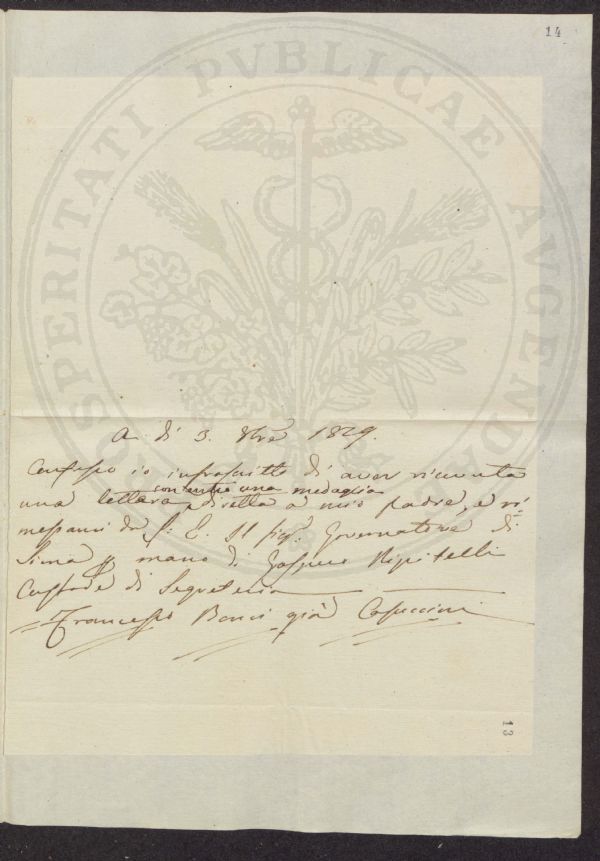 14
PROSPERITATI PVBLICAE AVGENDAE
A dì 3. 8bre 1829.
Confesso io infrascritto di aver ricevuta
con entro una medaglia
una lettera diretta a mio padre, e ri-
messami da S: E. Il Sig.r Governatore di
Siena per mano di Gaspero
Custode di Segreteria
Francesco Bonci già Capuccini
13